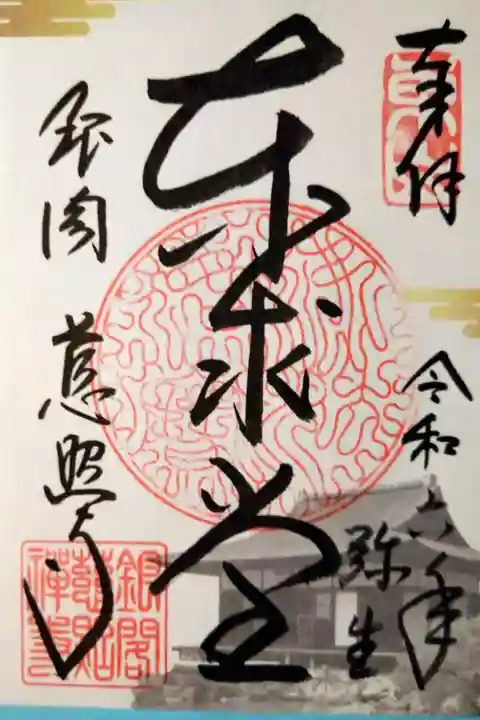 奉拝
令和六年
弥生
東求堂
銀閣 慈照寺
銀閣
慈照
禅寺